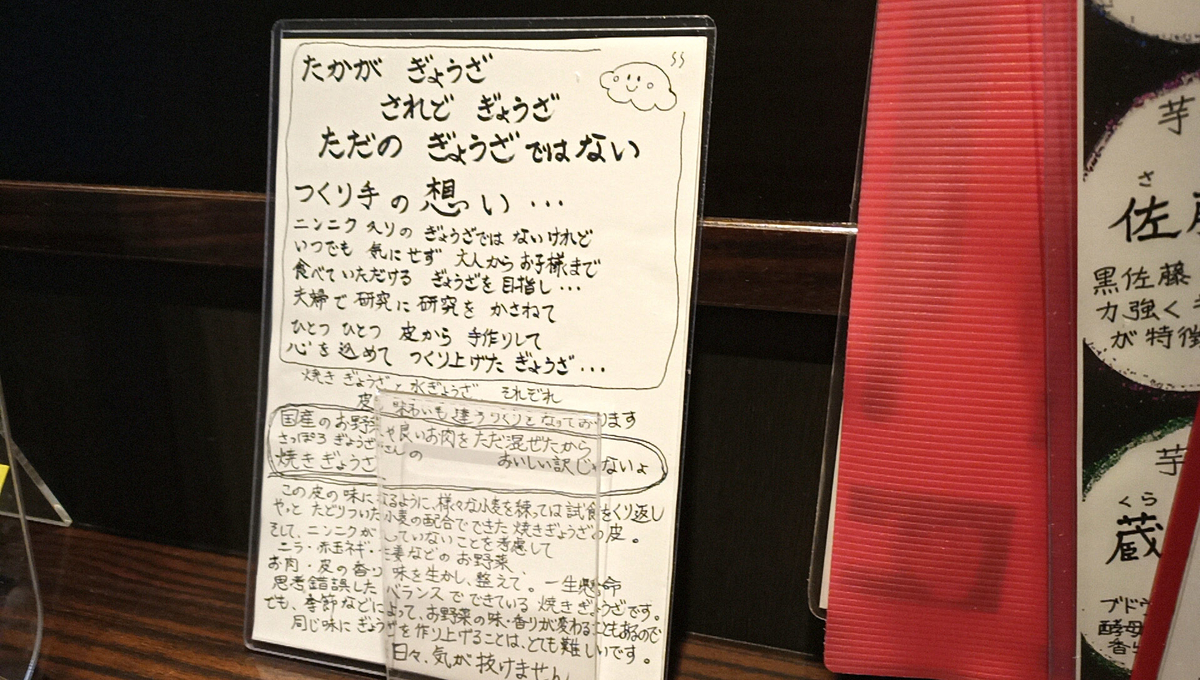 たかが ぎょうざ
されど ぎょうざ
ただの ぎょうざではない
つくり手の想い…
ニンニク入りの ぎょうざでは ないけれど
いつでも 気にせず 大人からお子様まで
食べていただける ぎょうざを目指し…
夫婦で研究に研究を かさねて
ひとつ ひとつ 皮から 手作りして
心を込めて つくり上げた ぎょうざ…
焼きぎょうざと水ぎょうざ それぞれ
皮 味わいも違うつくりとなっております
国産のお野菜や良いお肉をただ混ぜたから
さっぽろ ぎょうざ さんの おいしい訳じゃないょ
焼きぎょうざ
この皮の味になるように、様々な小麦を練っては試食をくり返し
やっと たどりついた小麦の配合でできた 焼きぎょうざの皮。
そして、ニンニクが していないことを考慮して
ニラ・赤玉ネギ・生姜などの お野菜、
お肉・皮の香り 味を生かし、整えて。一生懸命
思考錯誤した バランスで できている 焼きぎょうざです。
でも、季節などによって、お野菜の味・香りが変わることもあるので
同じ味にぎょうざを作り上げることは、とても難しいです。
日々、気が抜けません
芋
さ
佐
黒佐藤
力強く
が特徴
芋
くら
蔵
ブドウ
酵母
香